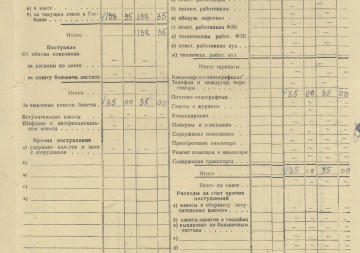 а) в кассе
б) на текущем счету в Гос-
банке 138 35 138 35
Итого 138 35
Поступило
От обкома отчисления
на расходы по смете
на оплату больничн. листков
Итого
За выданные комсом. билеты 35 00 35 00
Вступительные взносы
Шефские и интернациональ-
ные взносы
Прочие поступления
а) удержано нал-гов и займ
с сотрудников
б)
в)
г)
д)
е)
б) технич. работникам
в) обслуж. персонал
г) ответ. работникам ФЗК
д) техническим работн. ФЗК
е) ответ. работникам вуз
ж) технич. работн. вуз
Итого зарплаты
Канцелярско-типографские
Телефон и междугор. пере-
говоры
Почтово-телеграфные 35 00 35 00
Газеты и журналы
Командировки
Пленумы и совещания
Содержание помещения
Приобретение инвентаря
Ремонт помещен. и инвентаря
Содержание транспорта
Итого 35 00 35 00
Всего по смете
Расходы за счет прочих
поступлений
а) взносы в сберкассу всту-
пительных взносов
б) взносы налогов и госзайма
в) выплачено по больничным
листкам
г)
д)
е)